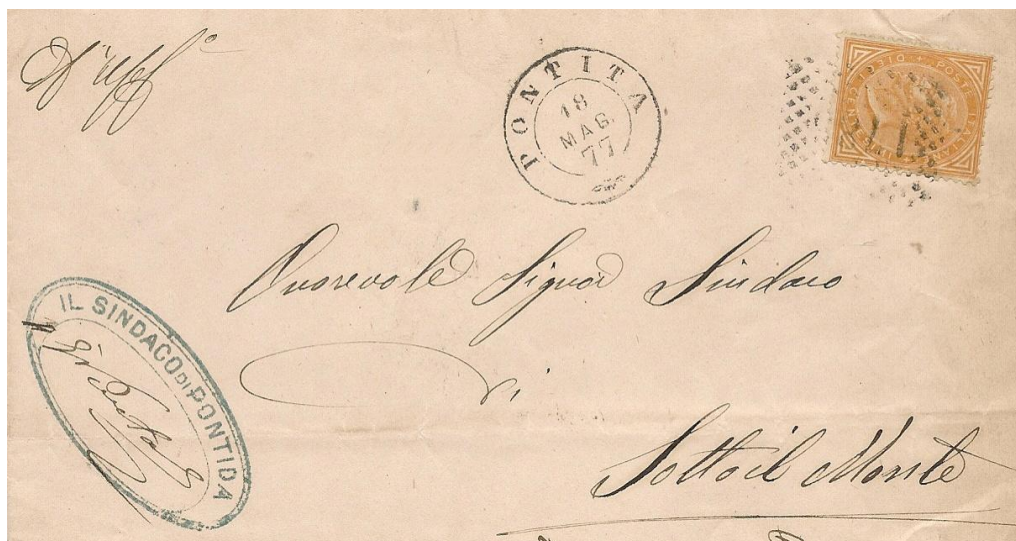 D'uff°
PONTITA
18
MAG
77
POSTE ITALIANE
DIECI CENTESIMI
Onorevole Signor Sindaco
di
Sotto il Monte
IL SINDACO DI PONTIDA